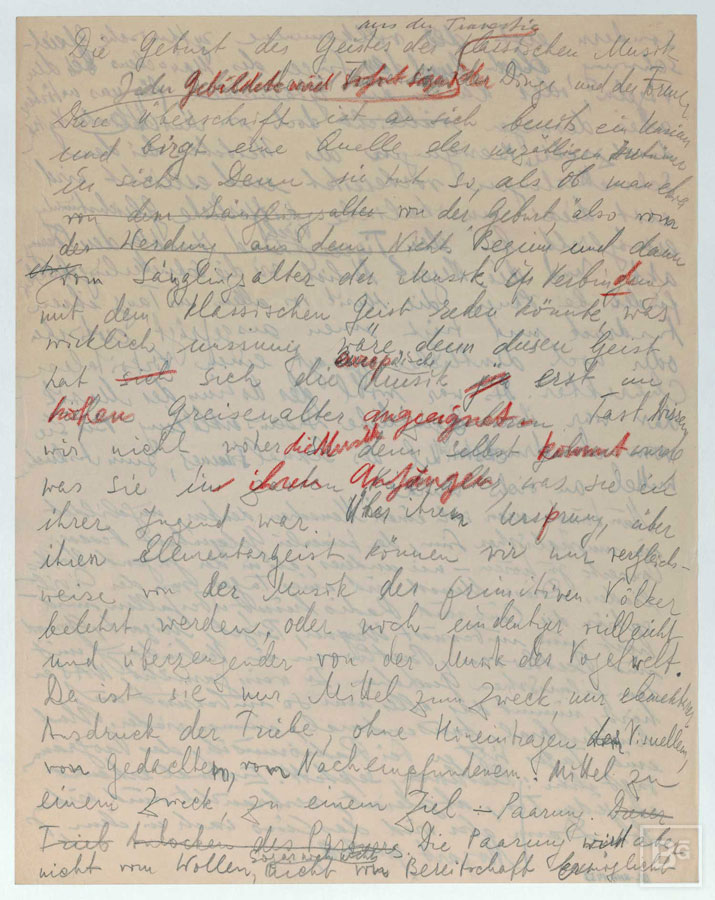 aus der Travestie
Die Geburt des Geistes der klassischen Musik
Jeder Gebildete wird sofort Dinge und der Formen
Diese Überschrift ist an sich bereits ein Unsinn
und birgt eine Quelle der unzähligen Irrtümer
in sich. Denn sie tut so, als ob man etwa
von dem Säuglingsalter von der Geburt, also vom
der Werdung aus dem Nichts Beginn und dann
etwa vom Säuglingsalter der Musik in Verbindung
mit dem klassischen Geist reden könnte, was
wirklich unsinnig wäre, denn diesen Geist
hat sich sich die europäische Musik erst im
hohen Greisenalter angeeignet. Fast wissen
wir nicht woher die Musik denn selbst kommt
was sie in ihren Anfängen, was sie in
ihrer Jugend war. Über ihren Ursprung, über
ihren Elementargeist können wir nur vergleichs-
weise von der Musik der primitiven Völker
belehrt werden, oder noch eindeutiger vielleicht
und überzeugender von der Musik der Vogelwelt.
Da ist sie nur Mittel zum Zweck, nur elementarer
Ausdruck der Triebe, ohne Hineintragen des Visuellen,
von Gedachtem, von Nachempfundenem. Mittel zu
einem Zweck, zu einem Ziel – Paarung. Dieser
Trieb Anlocken des Partners. Die Paarung wird also
sogar noch nicht
nicht vom Wollen, nicht von Bereitschaft ermöglicht